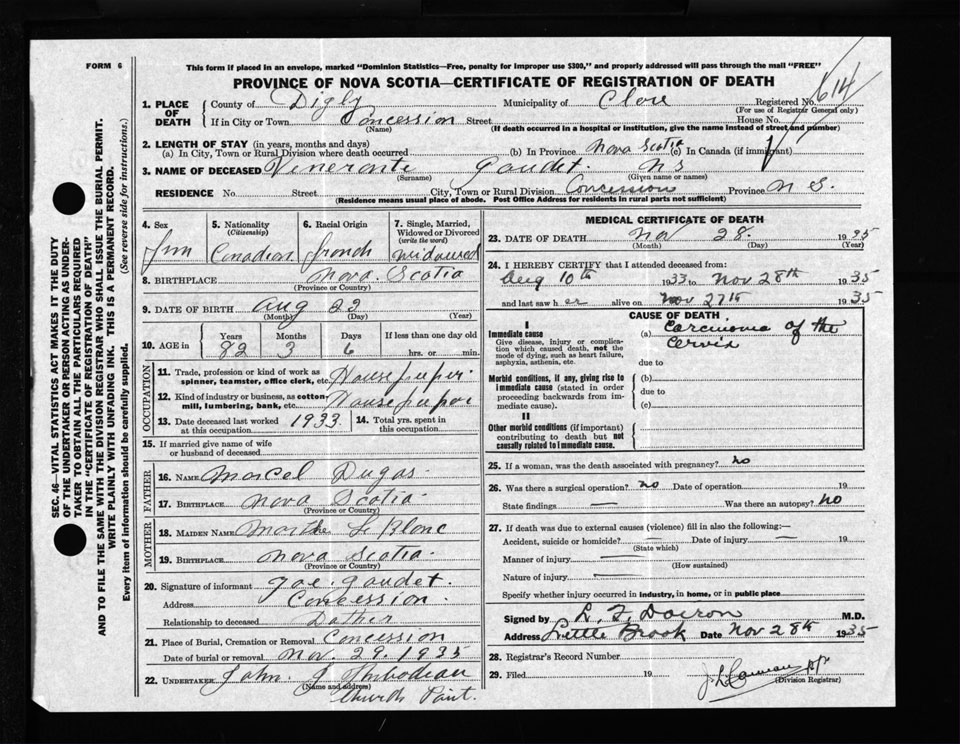 FORM 6
This form if placed in an envelope, marked "Dominion Statistics—Free, penalty for improper use $300," and properly addressed will pass through the mail "FREE"
PROVINCE OF NOVA SCOTIA—CERTIFICATE OF REGISTRATION OF DEATH
614
1. PLACE OF DEATH County of Digby Municipality of Clare Registered No.
(For use of Registrar General only)
If in City or Town Concession Street House No.
(Name) (If death occurred in a hospital or institution, give the name instead of street and number)
2. LENGTH OF STAY (in years, months and days)
(a) In City, Town or Rural Division where death occurred (b) In Province Nova Scotia (c) In Canada (if immigrant)
3. NAME OF DECEASED Gaudet N S
(Surname) (Given name or names)
RESIDENCE No. Street City, Town or Rural Division Concession Province N S.
(Residence means usual place of abode. Post Office Address for residents in rural parts not sufficient)
SEC. 46—VITAL STATISTICS ACT MAKES IT THE DUTY
OF THE UNDERTAKER OR PERSON ACTING AS UNDER-
TAKER TO OBTAIN ALL THE PARTICULARS REQUIRED
IN THE "CERTIFICATE OF REGISTRATION OF DEATH"
AND TO FILE THE SAME WITH THE DIVISION REGISTRAR WHO SHALL ISSUE THE BURIAL PERMIT.
WRITE PLAINLY WITH UNFADING INK. THIS IS A PERMANENT RECORD.
Every item of information should be carefully supplied. (See reverse side for instructions.)
4. Sex
5. Nationality (Citizenship)
6. Racial Origin
7. Single, Married, Widowed or Divorced (write the word)
Canadian French Widowed
8. BIRTHPLACE Nova Scotia
(Province or Country)
9. DATE OF BIRTH Aug 22
(Month) (Day) (Year)
10. AGE in Years Months Days If less than one day old
82 3 6 hrs. or min.
OCCUPATION
11. Trade, profession or kind of work as spinner, teamster, office clerk, etc. Housekeeper
12. Kind of industry or business, as cotton-mill, lumbering, bank, etc. Housekeeper
13. Date deceased last worked at this occupation 1933 14. Total yrs. spent in this occupation
15. If married give name of wife or husband of deceased
FATHER
16. NAME Marcel Dugas
17. BIRTHPLACE Nova Scotia
(Province or Country)
MOTHER
18. MAIDEN NAME Marthe LeBlanc
19. BIRTHPLACE Nova Scotia
(Province or Country)
20. Signature of informant Joe Gaudet.
Address Concession
Relationship to deceased
21. Place of Burial, Cremation or Removal Concession
Date of burial or removal Nov. 29. 1935
22. UNDERTAKER John J
(Name and address)
Church Point.
MEDICAL CERTIFICATE OF DEATH
23. DATE OF DEATH Nov 28. 1935
(Month) (Day) (Year)
24. I HEREBY CERTIFY that I attended deceased from:
Aug 10th 1933 to Nov 28th 1935
and last saw her alive on Nov 27th 1935
CAUSE OF DEATH
I
Immediate cause (a) Carcinoma of the
Give disease, injury or complication which caused death, not the mode of dying, such as heart failure, asphyxia, asthenia, etc. Cervix
due to
Morbid conditions, if any, giving rise to immediate cause (stated in order proceeding backwards from immediate cause). (b)
due to
(c)
II
Other morbid conditions (if important) contributing to death but not causally related to immediate cause.
25. If a woman, was the death associated with pregnancy? No
26. Was there a surgical operation? no Date of operation 19
State findings Was there an autopsy? No
27. If death was due to external causes (violence) fill in also the following:—
Accident, suicide or homicide? Date of injury 19
(State which)
Manner of injury
(How sustained)
Nature of injury
Specify whether injury occurred in industry, in home, or in public place
Signed by L. F. Doiron M.D.
Address Little Brook Date Nov 28th 1935
28. Registrar's Record Number
29. Filed 19
(Division Registrar)